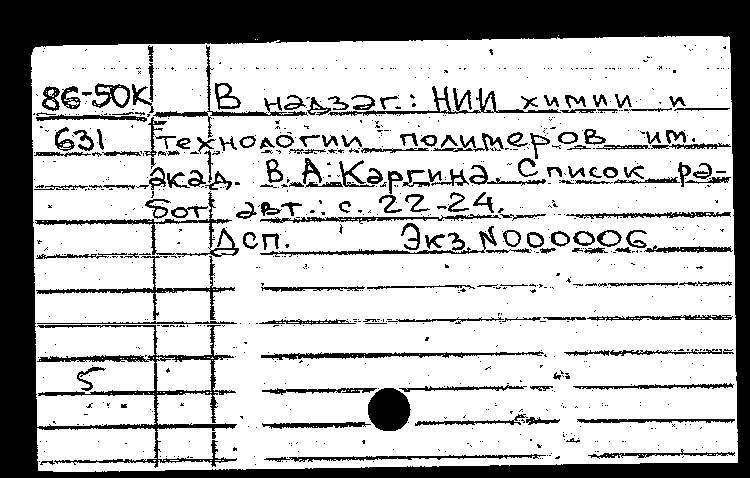 86-50К В надзаг.: НИИ химии и
631 технологии полимеров им.
акад. В.А.Каргина. Список ра-
бот авт.: с. 22-24.
Дсп. Экз. N000006.
5